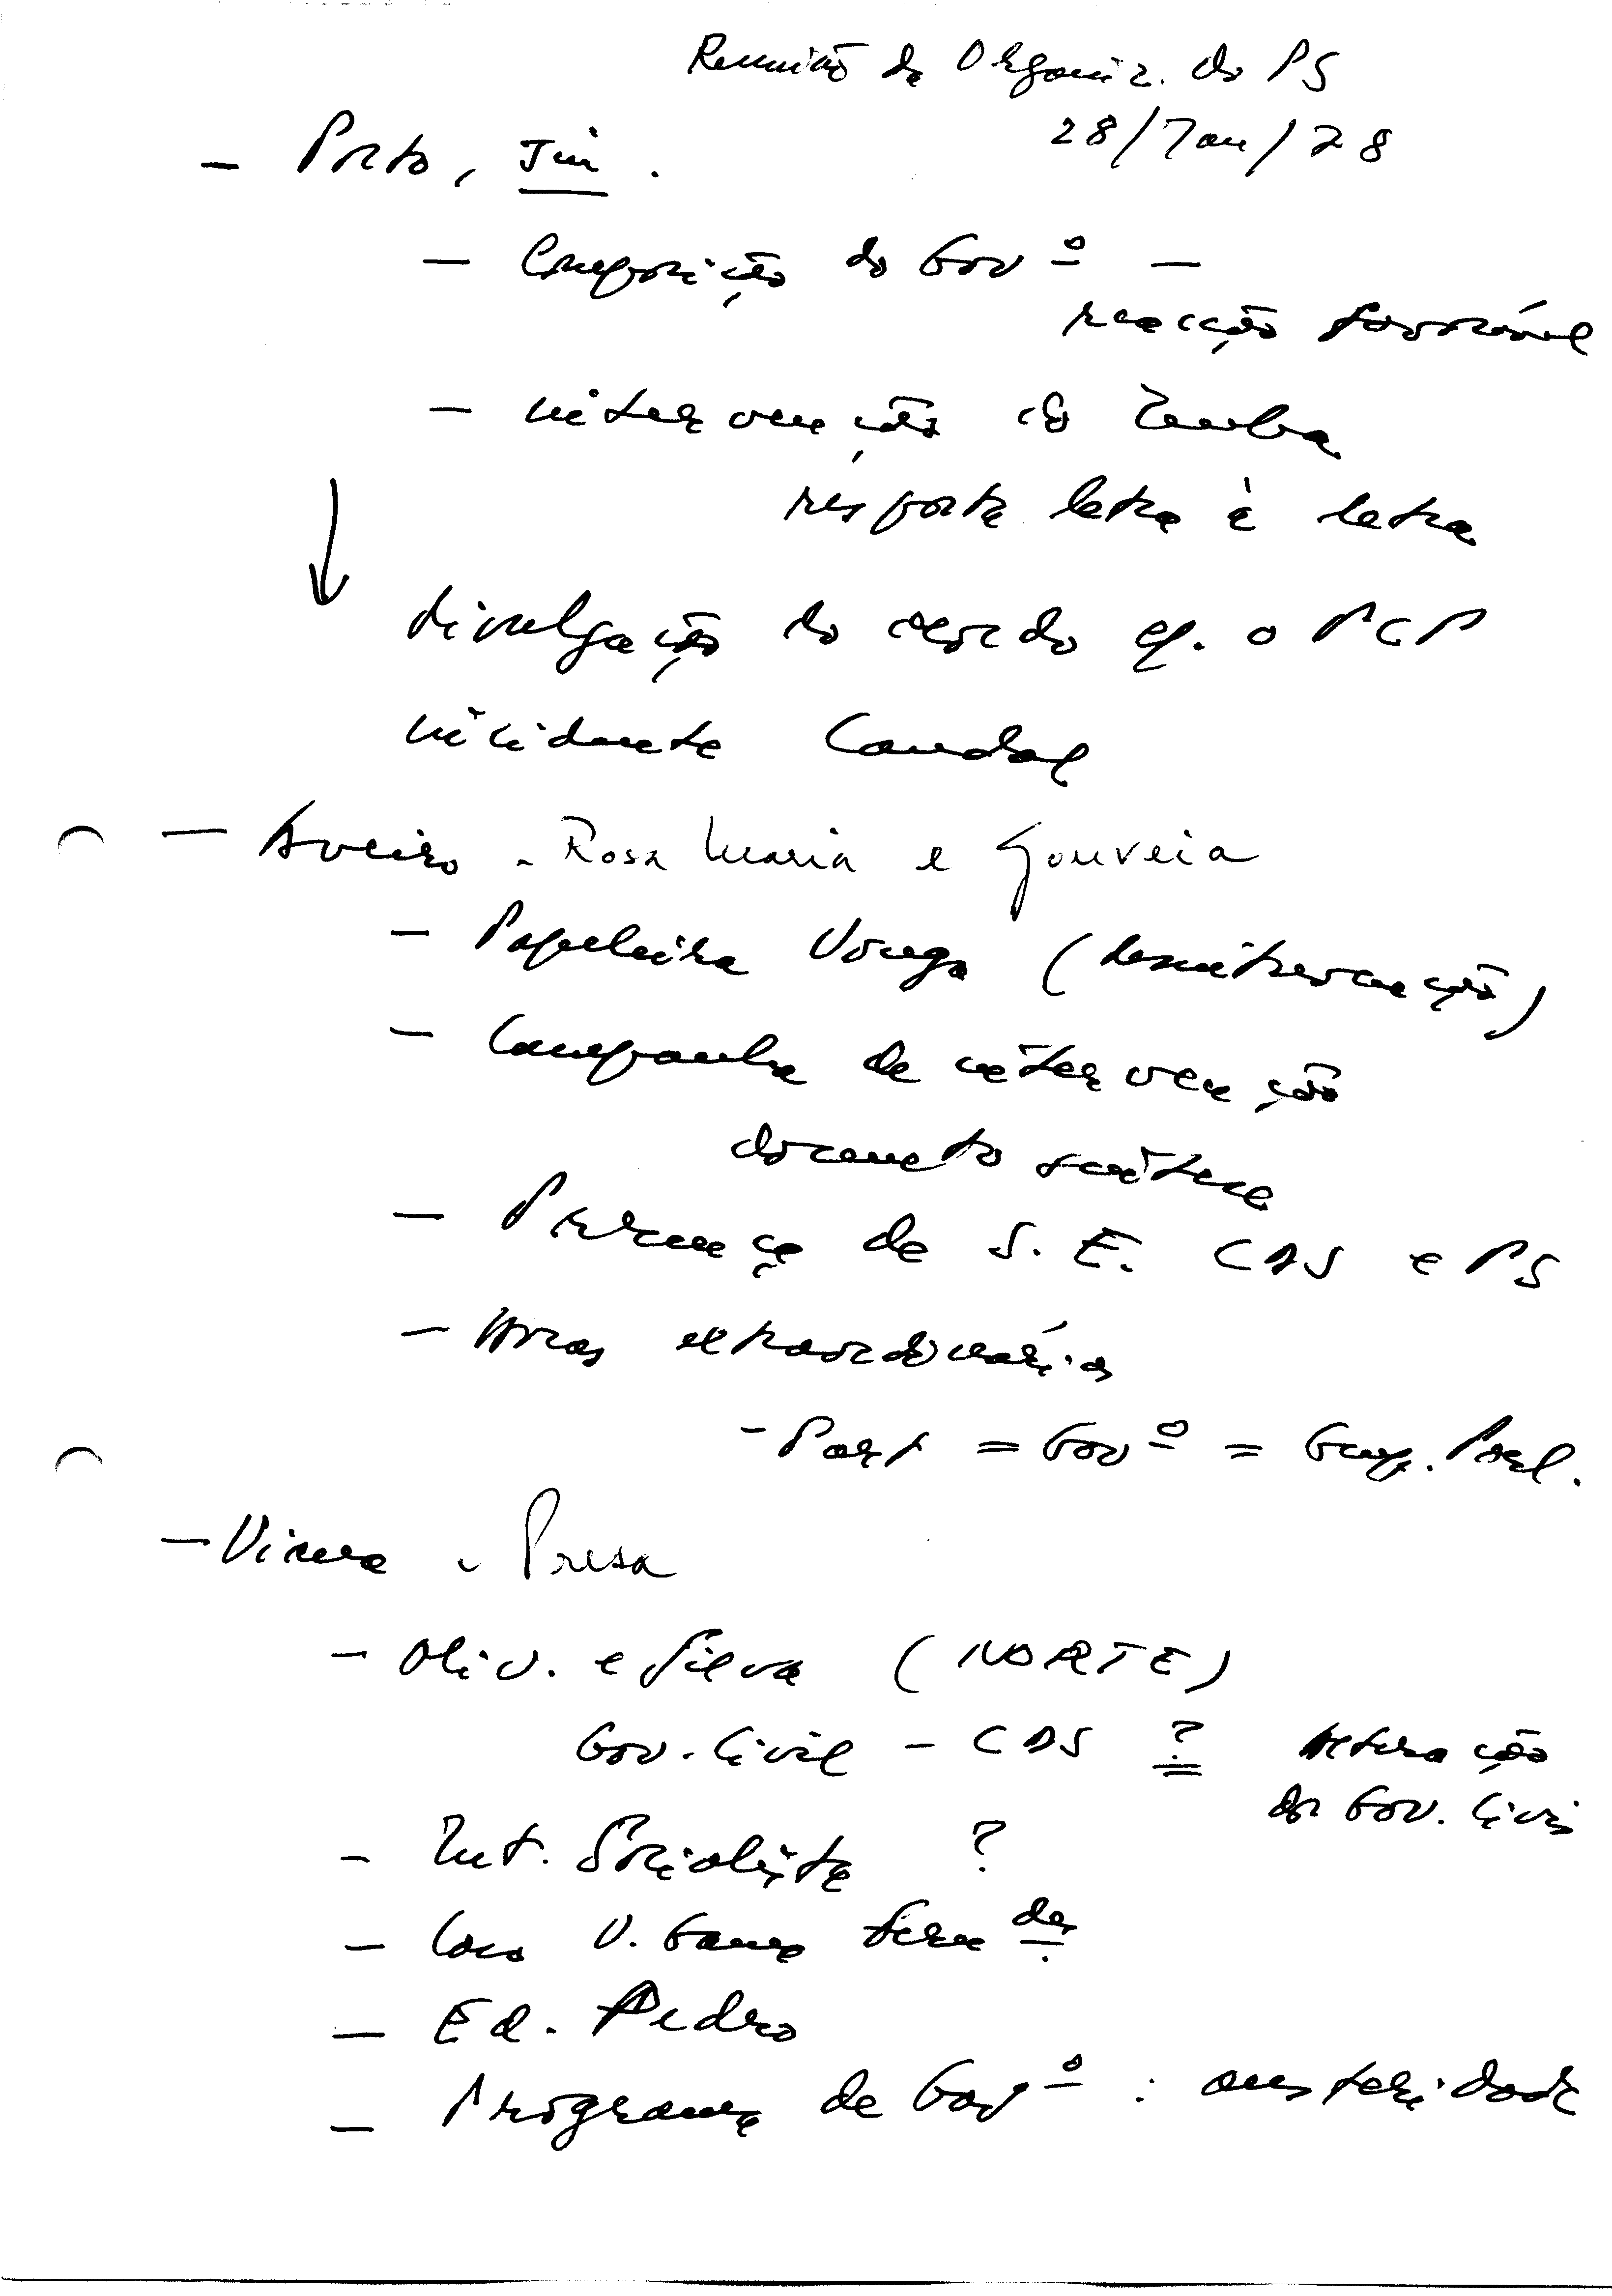 Reunião da Organiz. do PS
28/Jan/78
- Porto,
- Composição do Govº -
reacção favorável
- intervenção do Zenha
resposta letra à letra
divulgação do acordo c/. o PCP
incidente Candal
- Aveiro - Rosa Maria e Gouveia
- Papeleira Vouga (desintervenção)
- Campanha de intervenção
documento síntese
- Presença de S. E. CDS e PS
- Horas extraordinárias
- Part = Govº = Grup. Parl.
- Viana - Presa
- Oliv. e Silva (NORTE)
Gov. Civil - CDS ? Actuação
dos Gov. Civis
- Int. Socialista ?
- Caso V. Gama Ferndes.
- Ed. Pedro
- Programa de Govº : austeridade